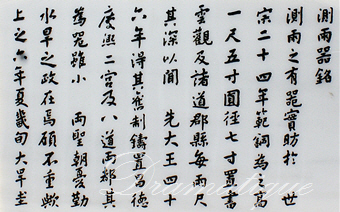 測雨器銘
測雨之有器實昉於 世
宗二十四年範銅為高
一尺五寸圓徑七寸置書
雲觀及諸道郡縣每雨尺
其深以聞 先大王四十
六年得其舊制鑄置昌德
慶熙二宮及八道兩都其
為器雖小 兩聖朝憂勤
水旱之政在焉顧不重歟
上之六年夏畿甸大旱圭
Dramatique